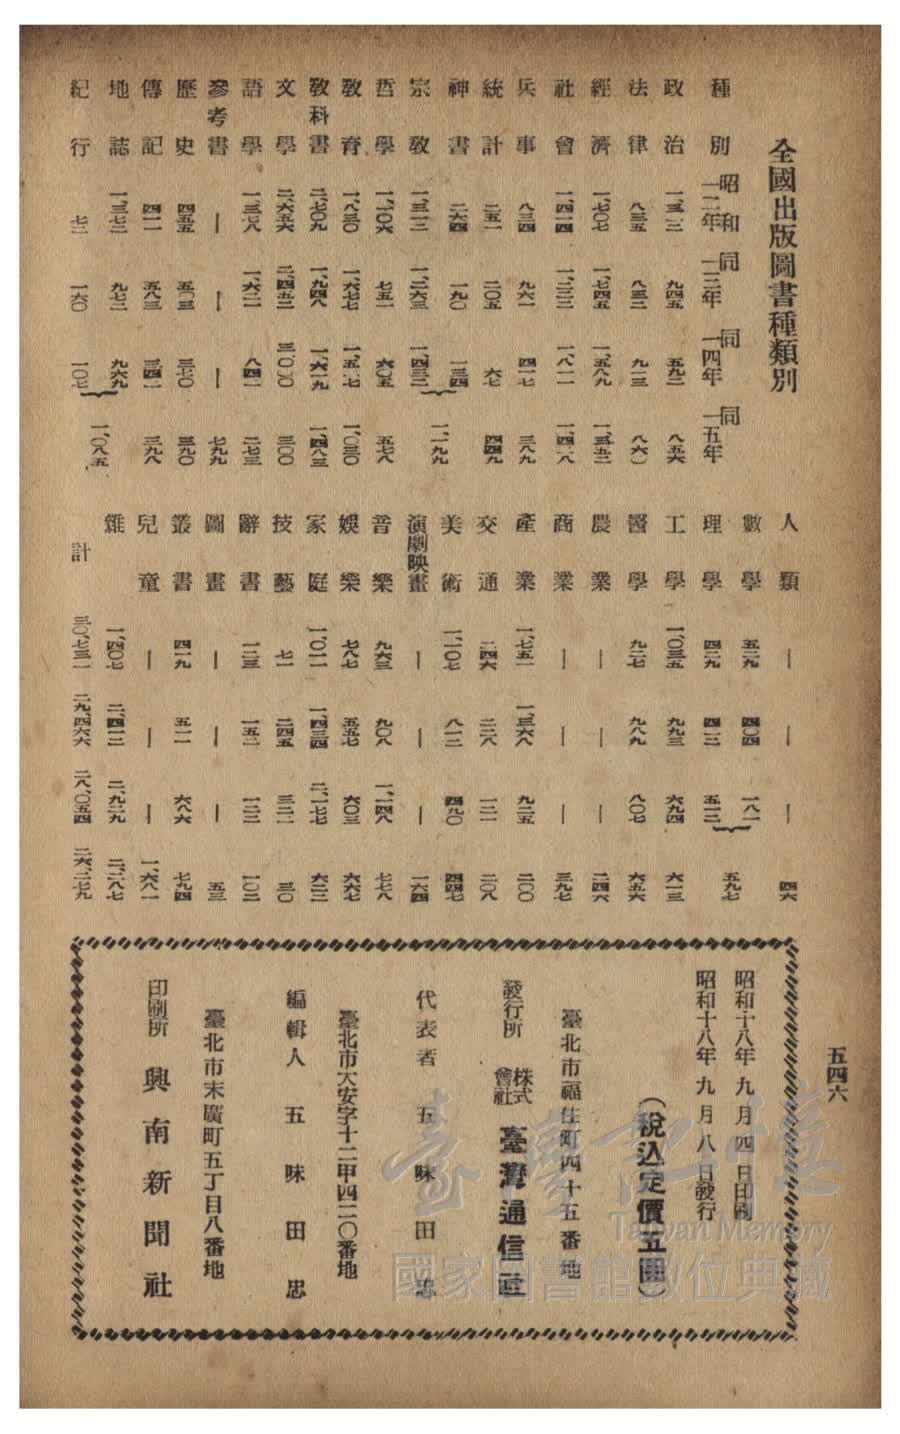 五四六
全國出版圖書種類別
種別 昭和一二年 同一三年 同一四年 同一五年
政治 九四五 五九二 八五六
法律 八三五 八三二 九一三 八六〇
經濟 一、七〇七 一、七四五 一、五八九 一、三五二
社會 一、四一四 一、三三三 一、八一一 一、四一八
兵事 八三四 九六一 四一七 三八九
統計 二五一 二〇五 六七 四四九
神書 二六四 一九〇 一三四
宗教 一、三一三 一、二六三 一、四三三 一、一九九
哲學 一、一〇六 七五一 六〇五 五七八
教育 一、八三〇 一、六七七 一、五一七 一、〇三〇
教科書 二、七〇九 一、九四八 一、六一九 一、四八三
文學 二、六五六 二、四五二 三、〇〇〇
語學 一、三七八 一、六二一 八四一 二七三
參考書 — — — 七九九
歷史 四五五 五〇三 三七〇 三九〇
傳記 四一一 五八三 三四二 三九八
地誌 一、三七三 九七二 九六九
紀行 七三 一六〇 一〇七 一、〇八五
人類 — — — 四六
數學 五二九 四〇四 一八一
理學 四二九 四一三 五一二 五九七
工學 一、〇三五 九九三 六九四 六一三
醫學 九二七 九八九 八〇七 六五六
農業 — — — 二四六
商業 — — — 三九七
產業 一、七五一 一、三六八 九二五 二〇〇
交通 二四六 二二八 一三一 二〇八
美術 一、一〇七 八一二 四九〇 四四七
演劇映畫 — — — 一六四
音樂 九六三 九〇八 一、一四八 七七八
娛樂 七六七 五五七 六〇三 六六七
家庭 一、〇一一 一、四三四 二、一七七 六二三
技藝 七一 二四五 三二一 三〇
辭書 一二三 一五二 一二三 一〇二
圖畫 — — — 五三
叢書 四一九 五一一 六八六 七九四
兒童 — — — 一、六八一
雜 一、四〇七 二、四一二 二、九二九 二、二八七
計 三〇、七三二 二九、四六六 二八、〇五四 二六、二七九
昭和十八年九月四日印刷
昭和十八年九月八日發行
（稅込定價五圓）
臺北市福住町四十五番地
發行所 株式會社 臺灣通信社
代表者 五味田忠
臺北市大安字十二甲四二〇番地
編輯人 五味田忠
臺北市末廣町五丁目八番地
印刷所 興南新聞社
臺灣記憶
Taiwan Memory
國家圖書館數位典藏